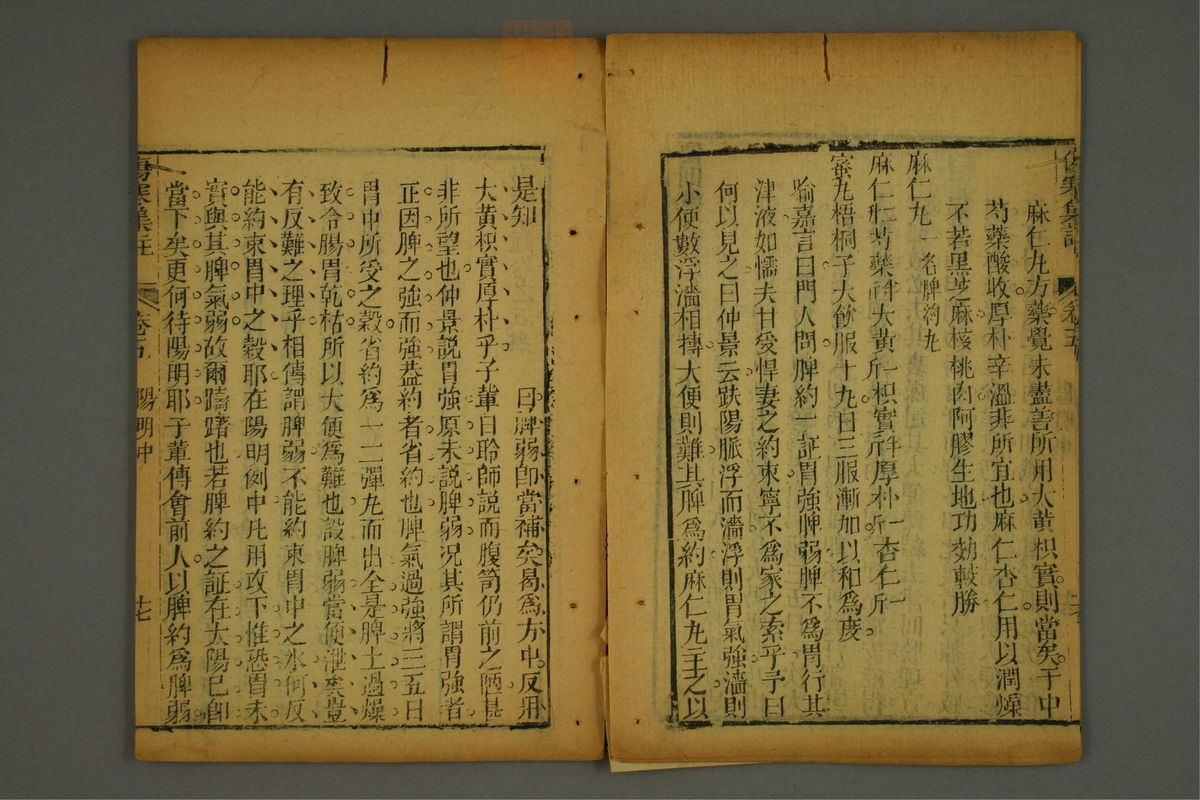 傷寒集註 卷五
麻仁九方藥覺未盡善所用大黃枳實則當矣于中
芍藥酸收厚朴辛溫非所宜也麻仁杏仁用以潤燥
不若黑芝麻核桃肉阿膠生地功効較勝
麻仁九 一名脾約九
麻仁 芍藥 大黃一斤枳實 厚朴一斤杏仁一斤
蜜九梧桐子大飲服十九日三服漸加以和為度
喻嘉言曰門人問脾約一証胃強脾弱脾不為胃行其
津液如懦夫甘受悍妻之約束寧不為家之索乎予曰
何以見之曰仲景云趺陽脈浮而濇浮則胃氣強濇則
小便數浮濇相摶大便則難其脾為約麻仁九主之以
是知 曰脾弱即當補矣曷為方中反用
大黃枳實厚朴乎子輩日聆師説而腹笥仍前之陋甚
非所望也仲景説胃強原未説脾弱況其所謂胃強者
正因脾之強而強蓋約者省約也脾氣過強將三五日
胃中所受之穀省約為一二彈九而出全是脾土過燥
致令腸胃乾枯所以大便為難也設脾弱當便泄矣豈
有反難之理乎相傳謂脾弱不能約束胃中之水何反
能約束胃中之穀耶在陽明例中凡用攻下惟恐胃未
實與其脾氣弱故爾躊躇也若脾約之証在太陽已即
當下矣更何待陽明耶子輩傳會前人以脾約為脾弱
傷寒集註 卷五 陽明中 十七